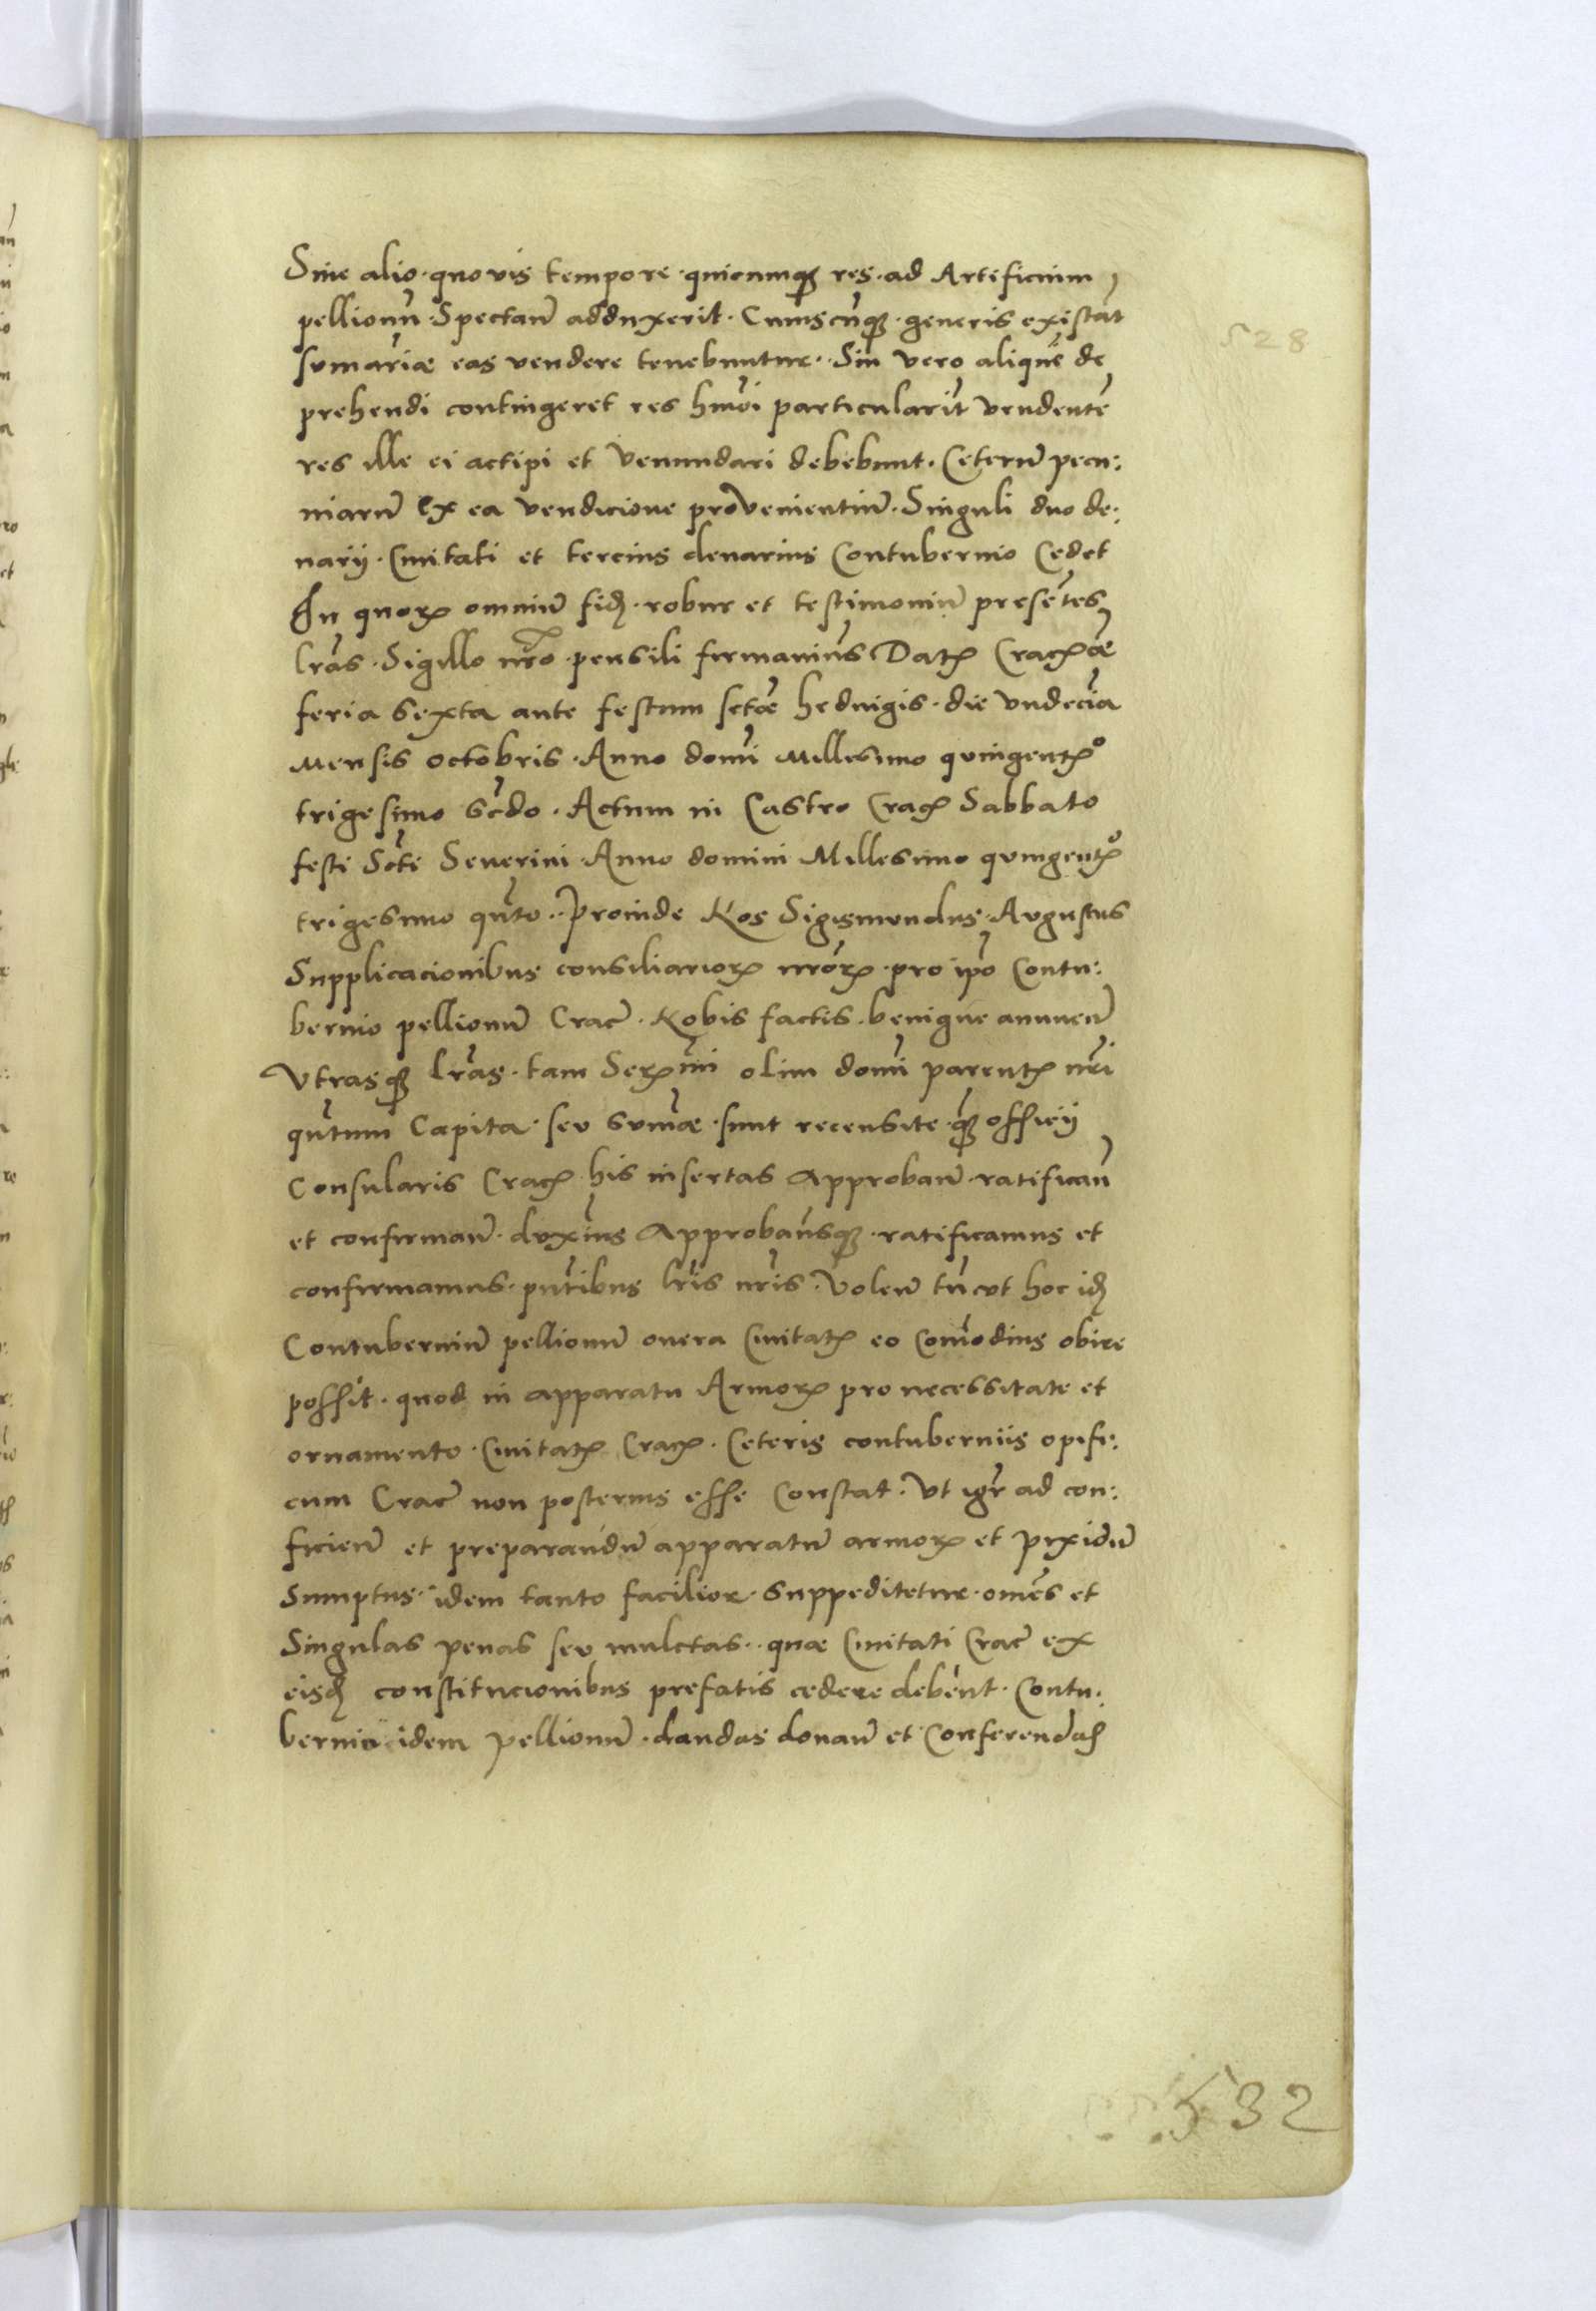 Siue alio quovis tempore quicunqȝ res ad Artificium
pellionũ Spectan̄ adduxerit. Cuiuscũqȝ generis existãt
sumariæ eas vendere tenebuntur. Sin vero aliquẽ de
prehendi contingeret res hmõi particularit̃ vendentẽ
res ille ei accipi et Venundari debebunt. Ceterũ pecu:
niarũ Ex ea vendicione proVenientiũ. Singuli duo de:
narij Ciuitati et tercius denarius Contubernio Cedet
In quoꝝ omniũ fidẽ robur et testimoniũ presẽtes
lr̃as Sigillo nr̃o pensili firmauimus Datꝫ Cracꝫ æ
feria sexta ante festum sctæ heduigis die vndecĩa
Mensis octobris Anno domĩ Millesimo quingentꝫº
trigesimo scd̃o. Actum in Castro Cracꝫ Sabbato
festi Scti Seuerini Anno domini Millesimo quingentꝫº
trigesimo qũto. Proinde Nos Sigismundus Augustus
Supplicacionibus consiliarioꝝ nr̃oꝝ pro ip̃o Contu:
bernio pellionũ Crac̃ Nobis factis benigne annuen̄
Vtrasqȝ lr̃as tam Serꝫmi olim domĩ parentꝫ nr̃i
qũtum Capita seu sum̃æ sunt recensite qȝ officij
Consularis Cracꝫ his insertas Approban̄ ratifican̄
et confirman̄ duximus Approbam̃usqȝ ratificamus et
confirmamus pñtibus lr̃is nr̃is. Volen̄ tñ vt hoc idẽ
Contuberniũ pellionũ onera Ciuitatꝫ eo Com̃odius obire
possit. quod in apparatu Armoꝝ pro necessitate et
ornamento Ciuitatꝫ Cracꝫ. Ceteris contuberniis opifi:
cum Crac̃ non posterius esse Constat. Vt igr̃ ad con:
ficien̄ et preparandũ apparatũ armoꝝ et pixidũ
Sumptus idem tanto facilior suppeditetur om̃es et
Singulas penas seu mulctas quæ Ciuitati Crac̃ ex
eisdẽ constitucionibus prefatis cedere debent Contu:
bernio idem pellionũ dandas donan̄ et Conferendas
528
532